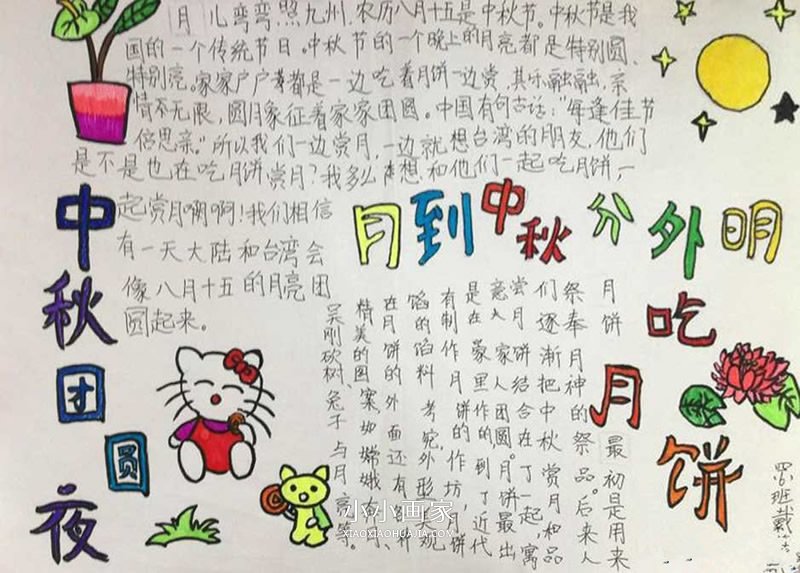 月儿弯弯照九州,农历八月十五是中秋节。中秋节是我
国的一个传统节日。中秋节的一个晚上的月亮都是特别圆、
特别亮。家家户户都是一边吃着月饼一边赏,其乐融融,亲
情无限,圆月象征着家家团圆。中国有句古话:"每逢佳节
倍思亲。"所以我们一边赏月,一边就想台湾的朋友,他们
是不是也在吃月饼赏月?我多么想和他们一起吃月饼,一
起赏月啊!我们相信
有一天大陆和台湾会
像八月十五的月亮团
圆起来。
中秋团圆夜
月到中秋分外明
吃月饼
月饼最初是用来
祭奉月神的祭品。后来人
们逐渐把中秋赏月和品
尝月饼结合在了一起,寓
意家人团圆。月饼最出
是在家里作的到了近代
有制作月饼的作坊,月饼
馅的馅料考究外形美观
在月饼的外面还有各种
精美的图案如嫦娥奔月、
吴刚砍树、兔子与月亮等。
小小画家
XIAOXIAOHUAJIA.COM